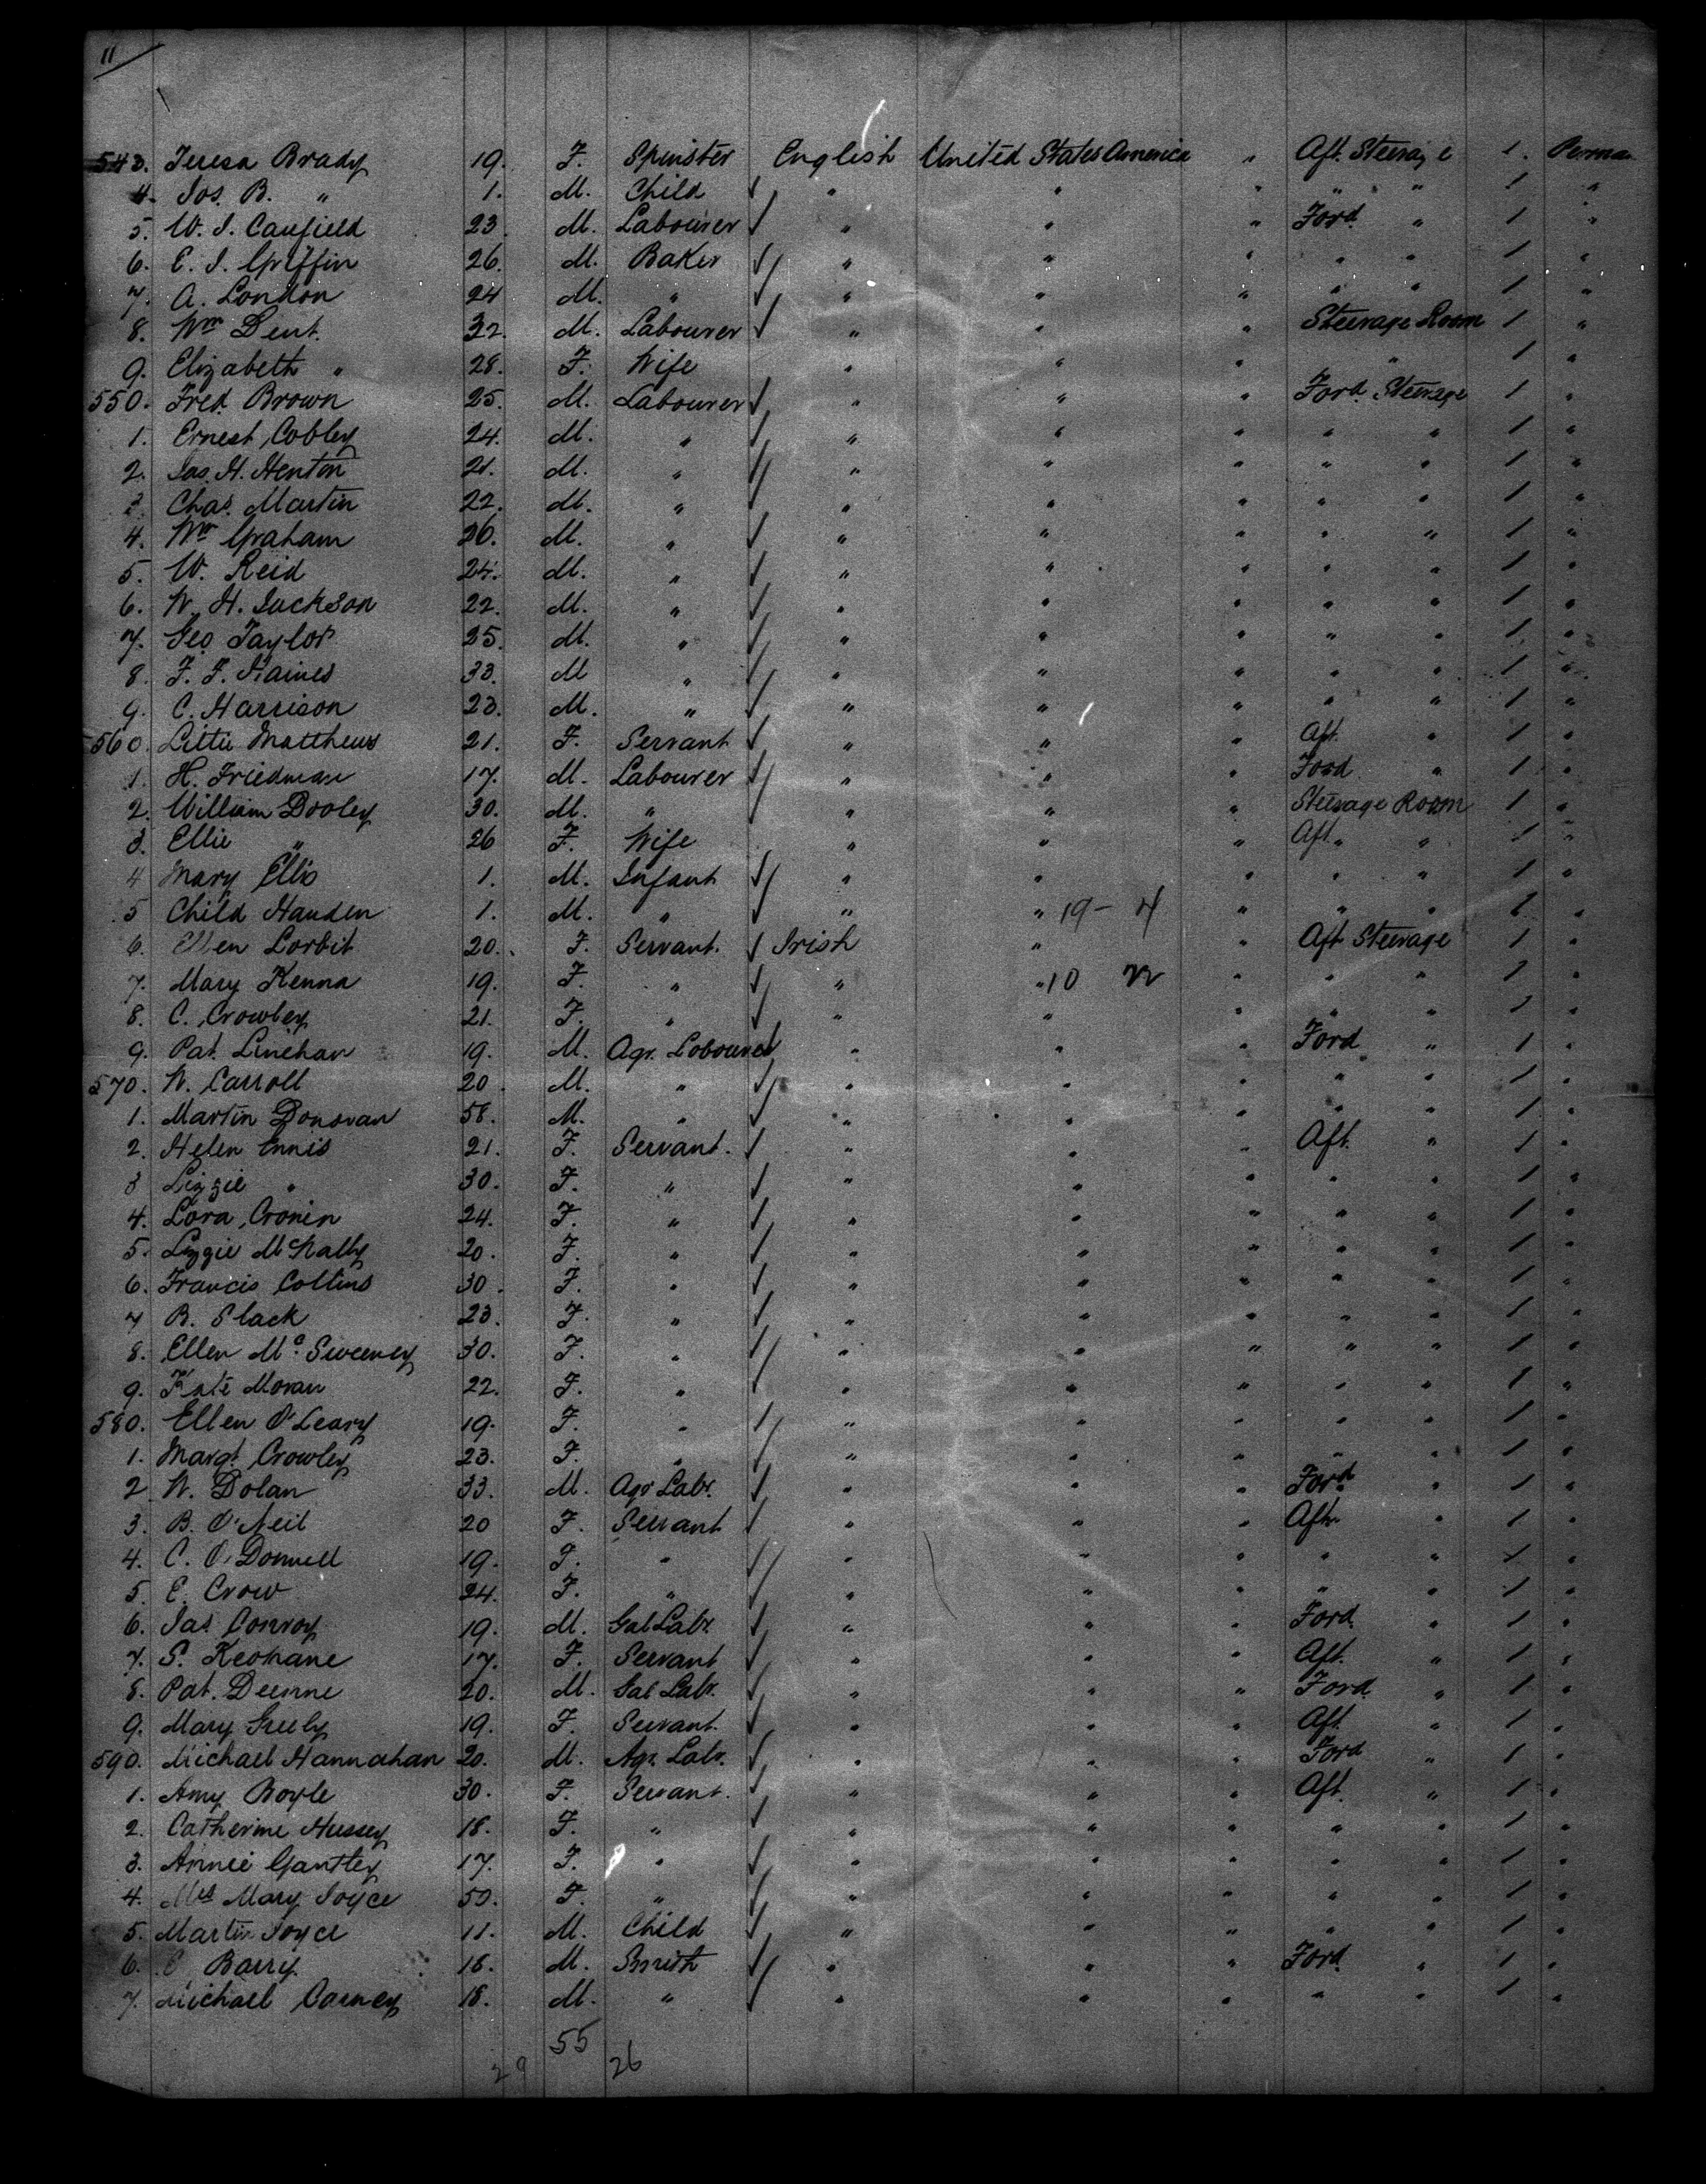 11
543. Teresa Brady 19. F. Spinster English United States America " Aft. Steerage 1. Perma
4. Jos. B. " 1. M. Child " " " " " 1 "
5. W. J. Caufield 23. M. Labourer " " " Ford. " 1 "
6. E. J. Griffin 26. M. Baker " " " " " 1 "
7. A. London 24 M. " " " " " " 1 "
8. Wm Dent. 32. M. Labourer " " " Steerage Room 1 "
9. Elizabeth " 28. F. Wife " " " " 1 "
550. Fred. Brown 25. M. Labourer " " " Ford. Steerage 1 "
1. Ernest Cobley 24. M. " " " " " " 1 "
2. Jas. H. Henton 21. M. " " " " " " 1 "
3. Chas. Martin 22. M. " " " " " " 1 "
4. Wm Graham 26. M. " " " " " " 1 "
5. W. Reid 24. M. " " " " " " 1 "
6. W. H. Jackson 22. M. " " " " " " 1 "
7. Geo Taylor 25. M. " " " " " " 1 "
8. F. F. Haines 33. M " " " " " " 1 "
9. C. Harrison 23. M. " " " " " " 1 "
560. Littie Matthews 21. F. Servant " " " Aft. " 1 "
1. H. Friedman 17. M. Labourer " " " Ford " 1 "
2. William Dooley 30. M. " " " " Steerage Room 1 "
3. Ellie " 26 F. Wife " " " Aft. " " 1 "
4 Mary Ellis 1. M. Infant " " " " " 1 "
5 Child Hauden 1. M. " " " 19 - 4 " " " 1 "
6. Ellen Corbit 20. F. Servant. Irish " " Aft Steerage 1 "
7. Mary Kenna 19. F. " " " 10 " " " 1 "
8. C. Crowley 21. F. " " " " " " 1 "
9. Pat. Linehan 19. M. Agr. Labourer " " " Ford " 1 "
570. W. Carroll 20. M. " " " " " " 1 "
1. Martin Donovan 58. M. " " " " " " 1 "
2. Helen Ennis 21. F. Servant. " " " Aft. " 1 "
3 Lizzie " 30. F. " " " " " " 1 "
4. Lora Cronin 24. F. " " " " " " 1 "
5. Lizzie McNally 20. F. " " " " " " 1 "
6. Francis Collins 30. F. " " " " " " 1 "
7 B. Slack 23. F. " " " " " " 1 "
8. Ellen Mc. Sweeney 30. F. " " " " " " 1 "
9. Kate Moran 22. F. " " " " " " 1 "
580. Ellen O'Leary 19. F. " " " " " " 1 "
1. Margt. Crowley 23. F. " " " " " " 1 "
2 W. Dolan 33. M. Agr Labr. " " " Ford " 1 "
3. B. O'Neil 20 F. Servant " " " Aft. " 1 "
4. C. O'Donnell 19. F. " " " " " " 1 "
5. E. Crow 24. F. " " " " " " 1 "
6. Jas. Conroy 19. M. Gal Labr. " " " Ford. " 1 "
7. S. Keohane 17. F. Servant " " " Aft. " 1 "
8. Pat. Deenne 20. M. Gal Labr. " " " Ford. " 1 "
9. Mary Greely 19. F. Servant. " " " Aft. " 1 "
590. Michael Hannahan 20. M. Agr. Labr. " " " Ford " 1 "
1. Amy Boyle 30. F. Servant. " " " Aft. " 1 "
2. Catherine Hussey 18. F. " " " " " " 1 "
3. Annie Gantley 17. F. " " " " " " 1 "
4. Mrs Mary Joyce 50. F. " " " " " " 1 "
5. Martin Joyce 11. M. Child " " " " " 1 "
6. Barry. 18. M. Smith " " " Ford. " 1 "
7. Michael Carney 18. M. " " " " " " 1 "
55
29 26